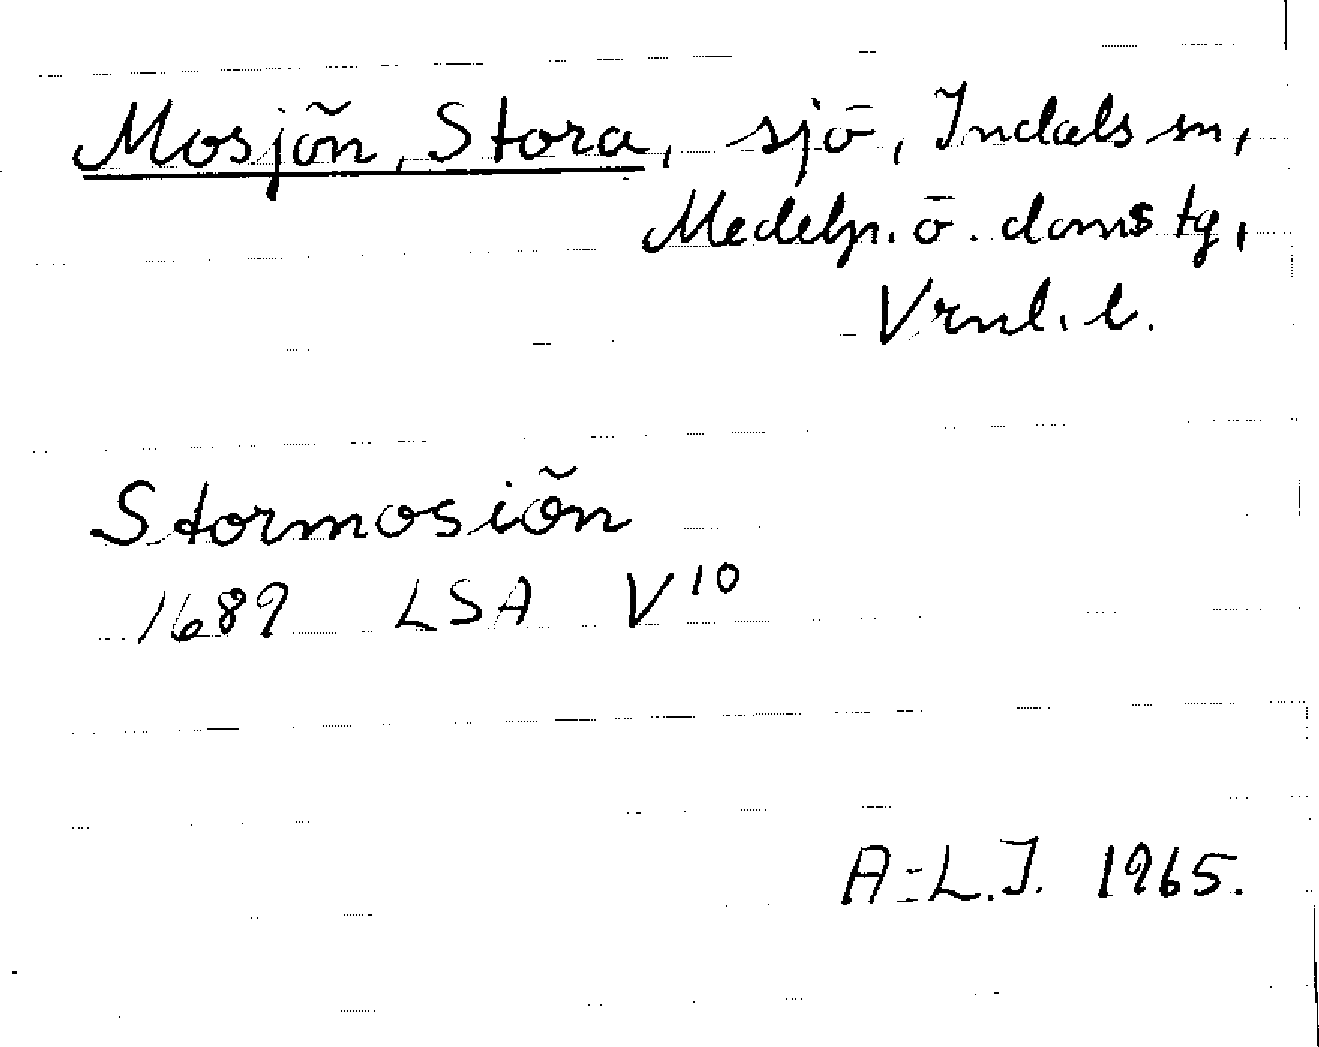 Mosjön, Stora, sjö, Indals sn,
Medelp. ö. doms tg,
Vrnl. l.
Stormosiön
1689 LSA V10
A-L.J. 1965.